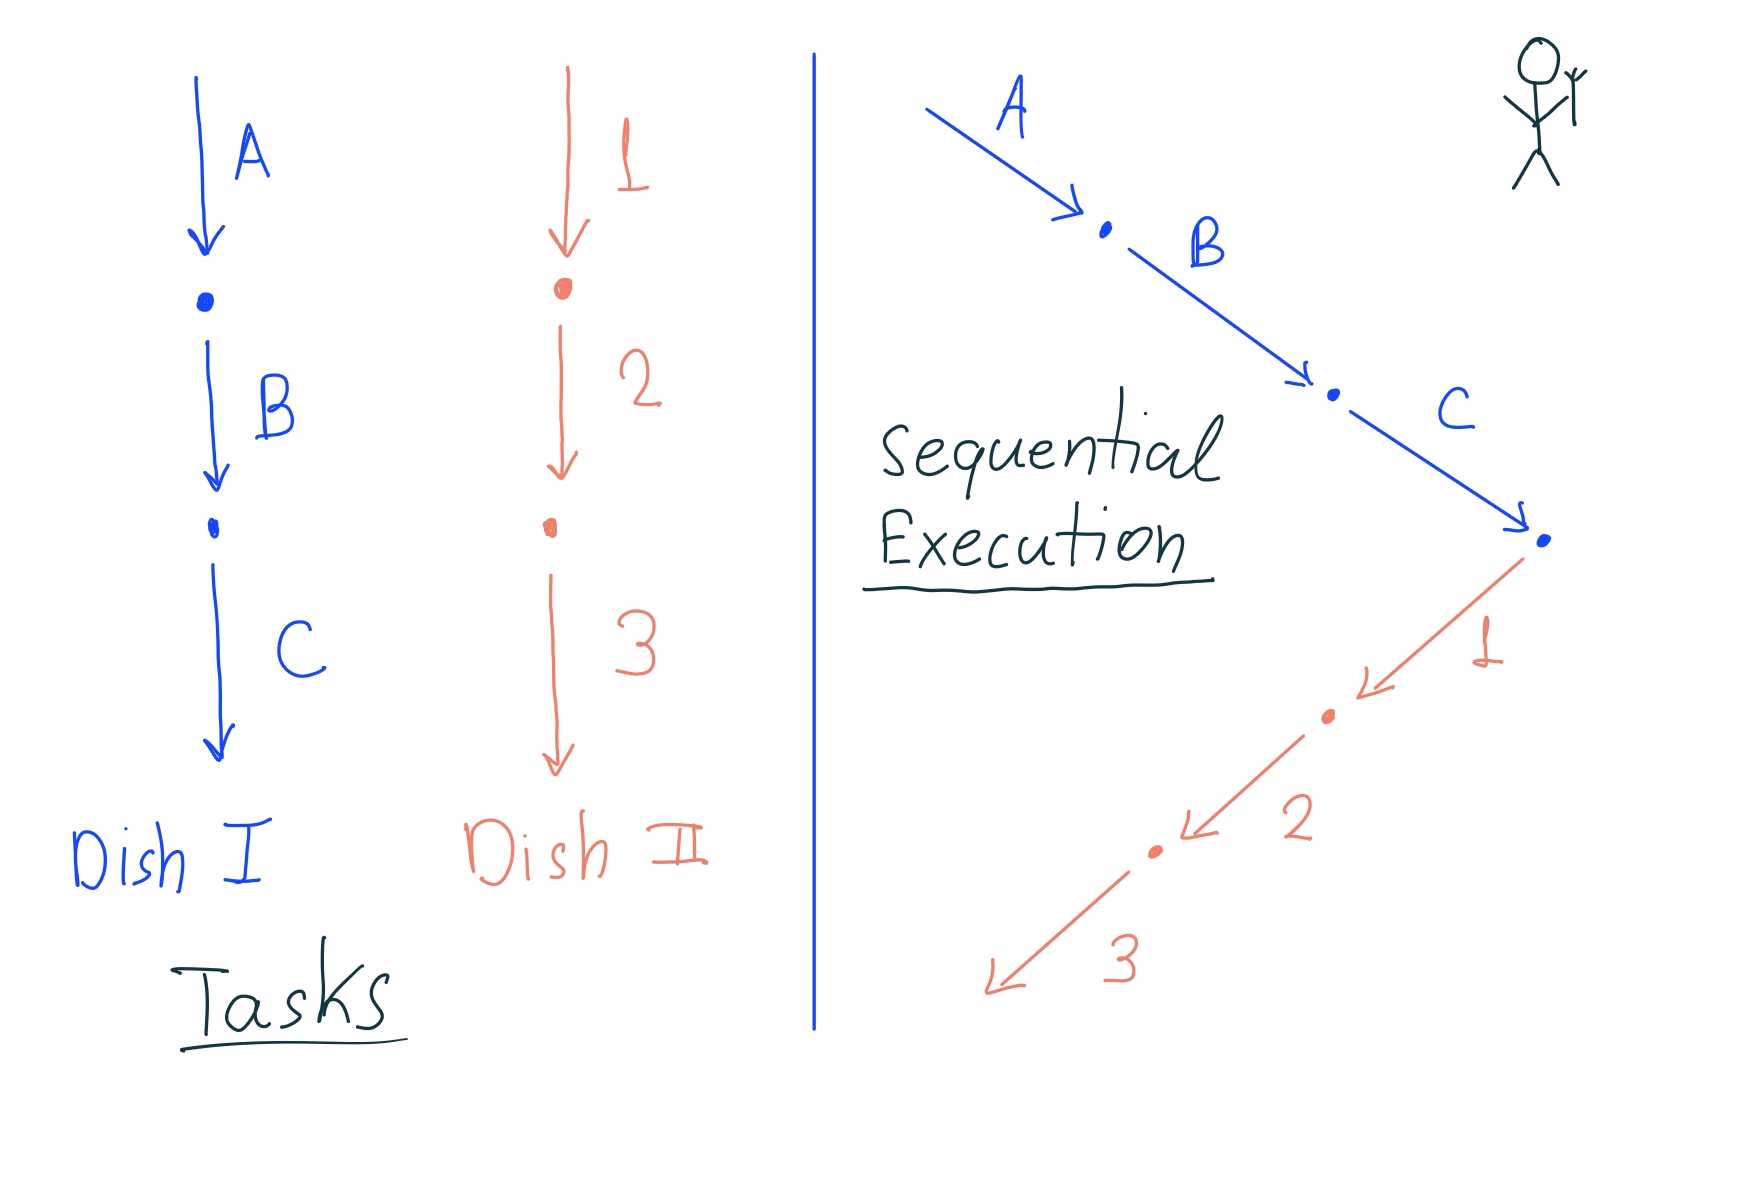 A
B
C
Dish I
1
2
3
Dish II
Tasks
A
B
C
Sequential
Execution
1
2
3